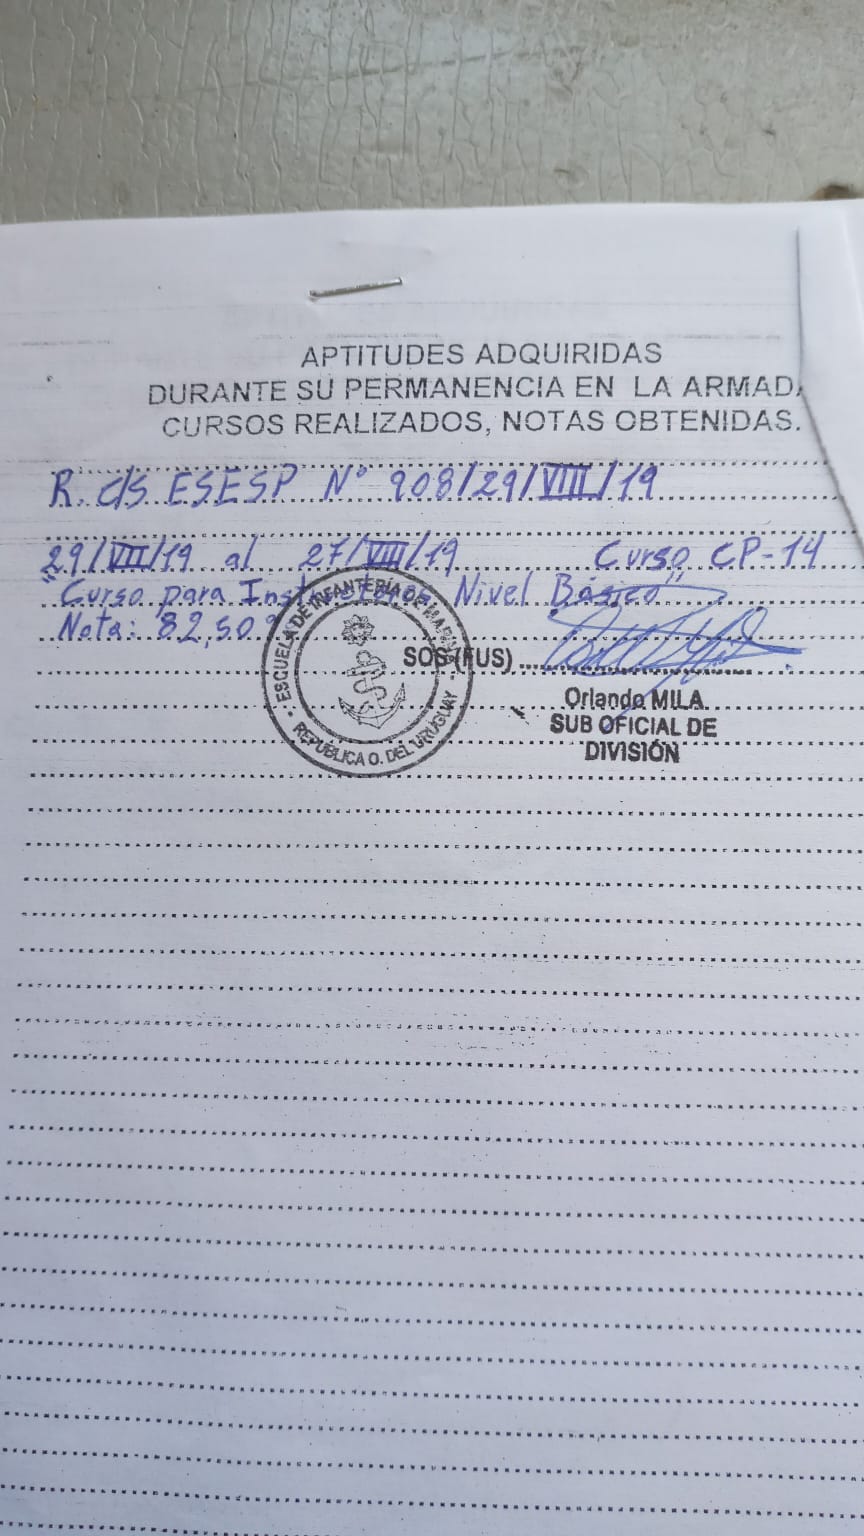 APTITUDES ADQUIRIDAS
DURANTE SU PERMANENCIA EN LA ARMADA
CURSOS REALIZADOS, NOTAS OBTENIDAS.
R. C/S ESESP N° 908/29/VIII/19
29/VII/19 al 27/VIII/19 Curso CP-14
"Curso para Instructores Nivel Básico"
Nota: 82,50
ESCUELA DE INFANTERÍA DE MARINA
REPUBLICA O. DEL URUGUAY
SOS (FUS)
Orlando MILA
SUB OFICIAL DE
DIVISIÓN